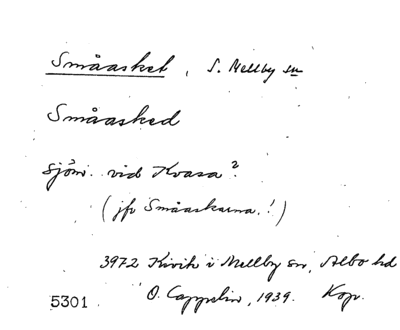 Småasket, S. Mellby sn
Småasked
Sjöni. vid Kvasa?
(jfr Småaskarna.!)
3972 Kivik i Mellby sn, Albo hd
5301 O. Cappelin, 1939. Kop.